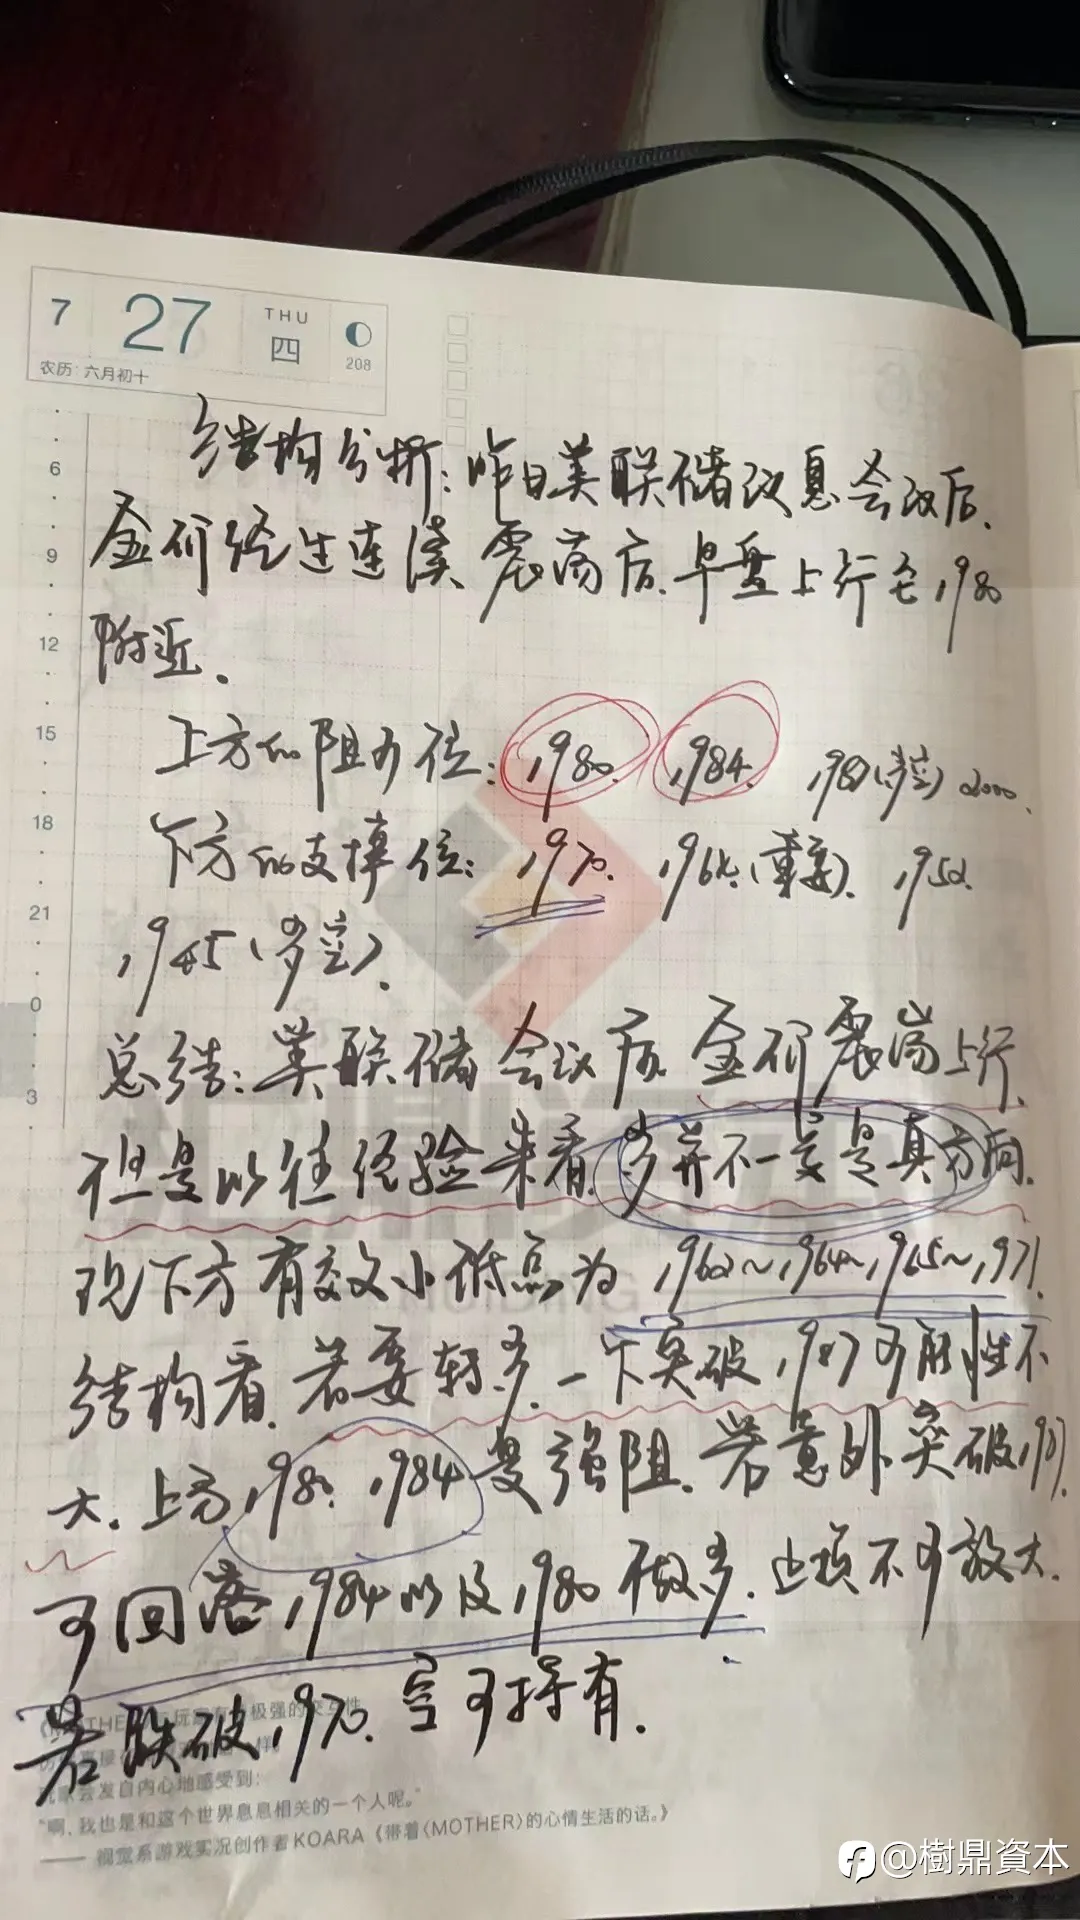 7 27 THU 四 208
农历:六月初十
结构分析:昨日美联储议息会议后、
6
金价经过连续震荡后、早盘上行至1980
9
附近.
12
上方的阻力位: 1980. 1984. 1987(多空) 2000.
15
下方的支撑位: 1970. 1964.(重要). 1952.
18
1945(多空).
21
0
总结:美联储会议后 金价震荡上行
3
但是以往经验来看、多并不一定是真方向.
现下方有效小低点为 1962~1964~1965~1971.
结构看.若要转多.一下突破1987可能性不
大.上方1980. 1984是强阻.若意外突破1987
可回落1984以及1980做多.止损不可放大.
若跌破1970.空可持有.
极强的交互性
会发自内心地感受到:
“啊,我也是和这个世界息息相关的一个人呢。”
—— 视觉系游戏实况创作者KOARA《带着〈MOTHER〉的心情生活的话。》
@樹鼎資本